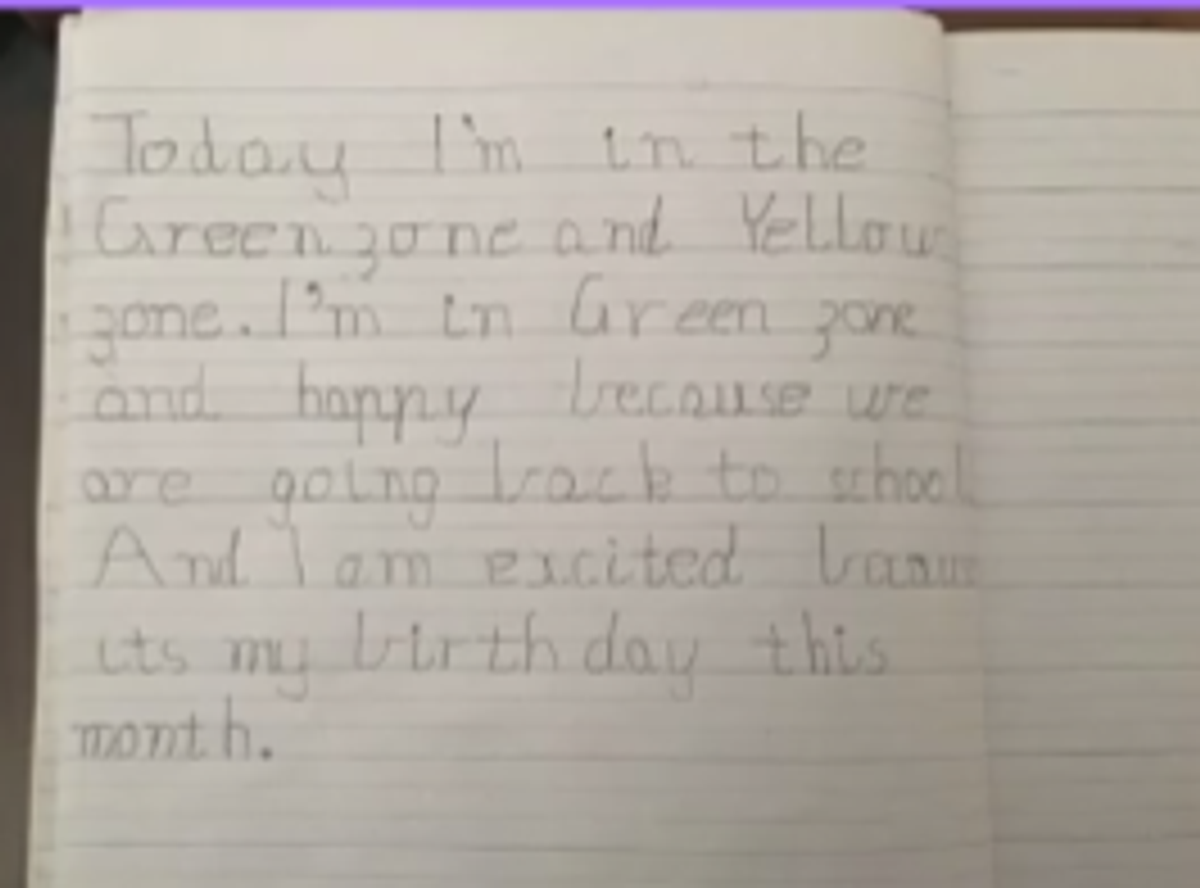 Today I'm in the
Green zone and Yellow
zone. I'm in Green zone
and happy because we
are going back to school
And I am excited
its my birthday this
month.